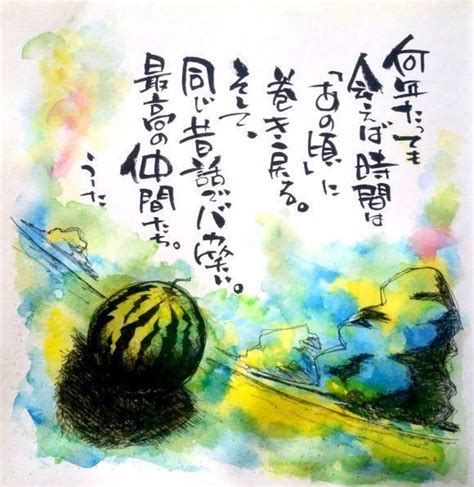 何年たっても
会えば時間は
「あの頃」に
巻き戻る。
そして、
同じ昔話でバカ笑い。
最高の仲間たち。
うーた